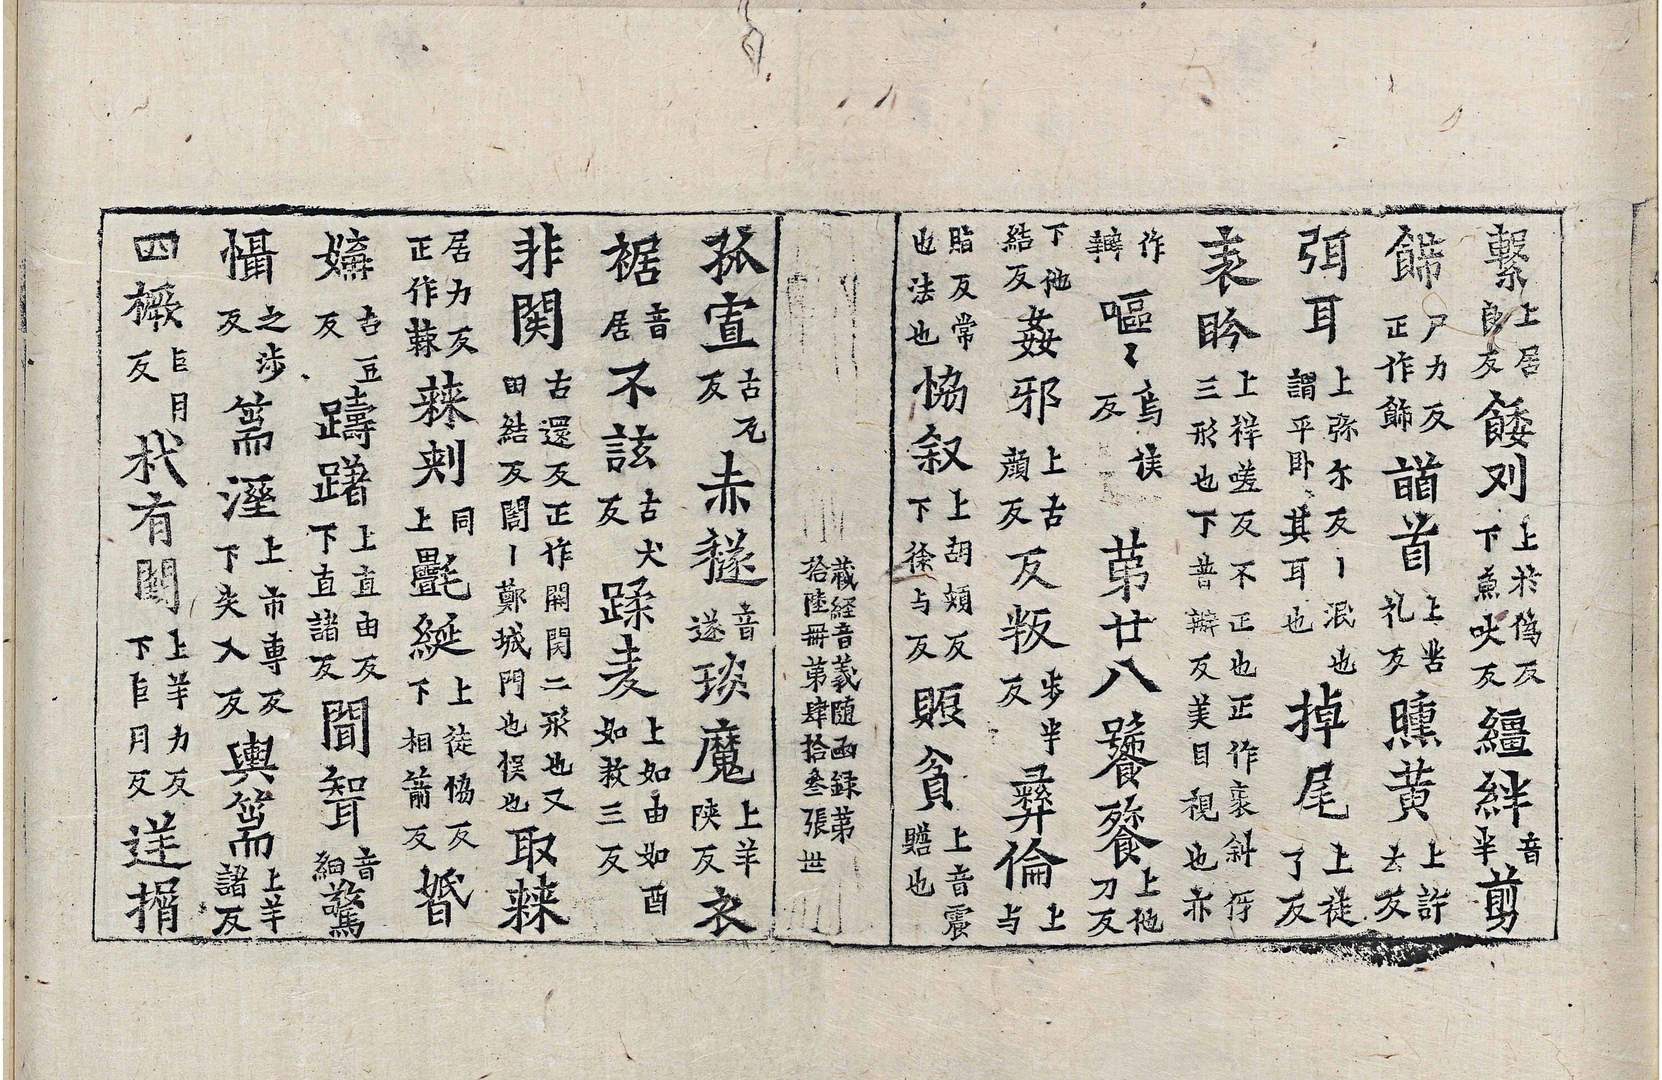 繫上居𦣞反餧刈上於僞反下魚吠反繮絆音半剪
餙尸力反正作飾𩠐首上苦礼反曛黄上許云反
弭耳上弥尔反丨泯也謂平卧其耳也掉尾上徒了反
袤盻上祥嗟反不正也正作衺斜伢三形也下普辦反美目視也亦
作𥌊嘔〻烏侯反第廿八饕餮上他刀反
下他結反姦邪上古顔反反叛步半反彛倫上与
脂反常也法也恊叙上胡頰反下徐与反賑貧上音震贍也
藏経音義随函録第拾陸冊第肆拾叁張 世
孤䆠古瓦反赤㒸音遂琰魔上羊陕反衣
裾音居不詃古犬反蹂麦上如由如酉如救三反
非閞古還反正作關関二形也又田結反閤丨鄭城門也悮也取棘
居力反正作棘棘刺同上氎綖上徒恊反下相箭反婚
㜸古五反躊躇上直由反下直諸反聞聟音細驚
懾之涉反篅溼上市専反下失入反輿篅上羊諸反
四橛巨月反杙有閣上羊力反下巨月反送揟